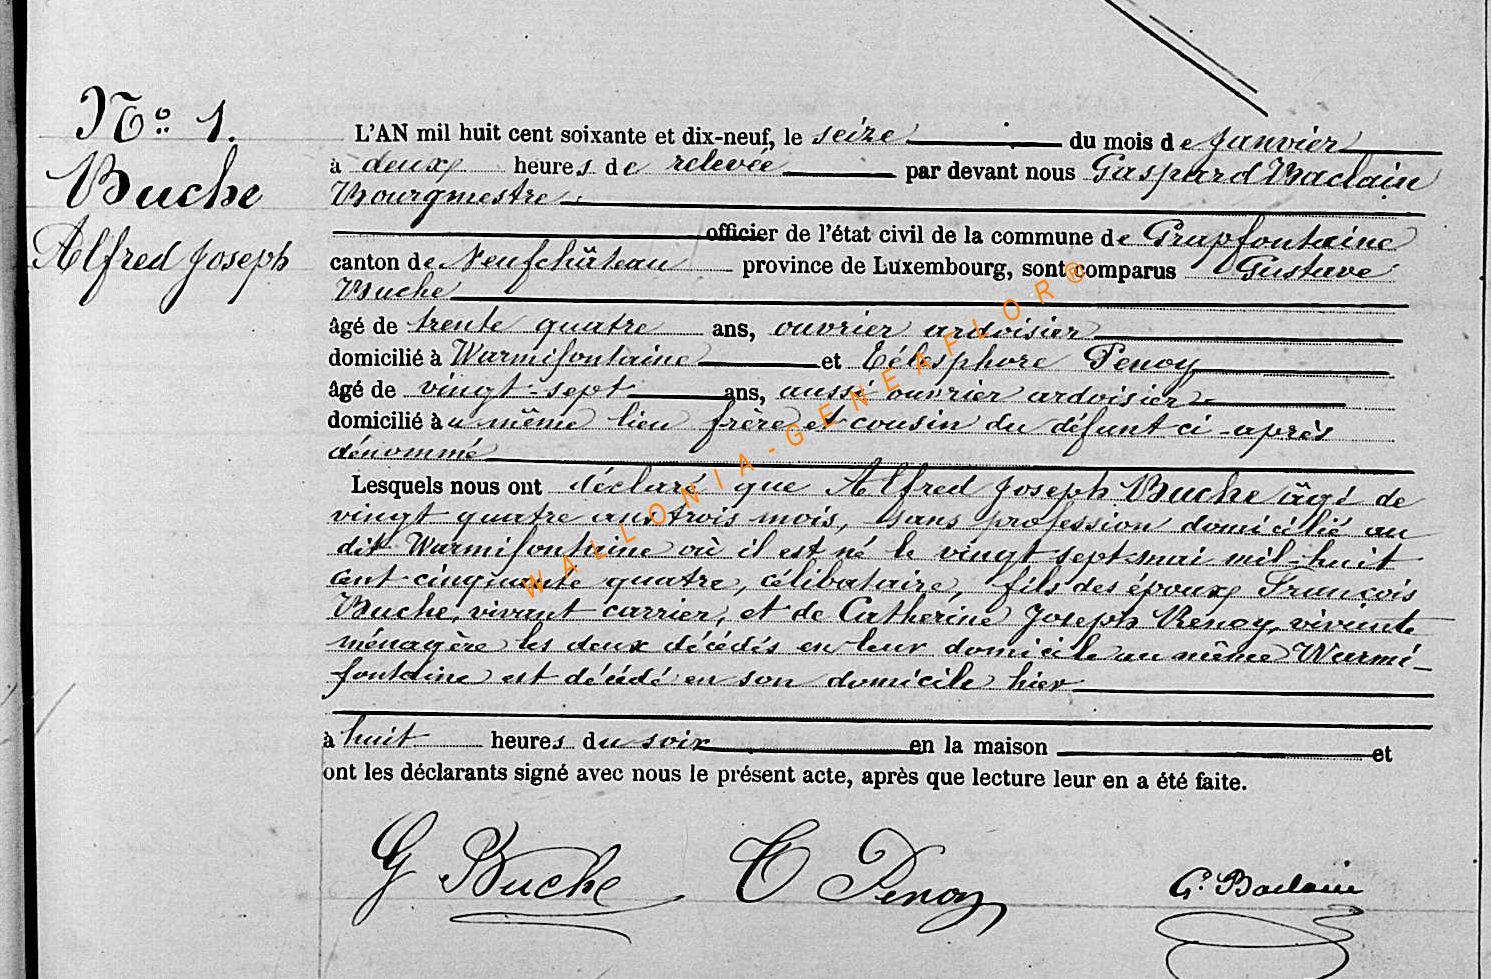 N°: 1.
Buche
Alfred Joseph
L'AN mil huit cent soixante et dix-neuf, le seize du mois de janvier
à deux heures de relevée par devant nous Gaspard Baclain
Bourgmestre
officier de l'état civil de la commune de Grapfontaine
canton de Neufchâteau province de Luxembourg, sont comparus Gustave
Buche
âgé de trente quatre ans, ouvrier ardoisier
domicilié à Warmifontaine et Télesphore Penoy
âgé de vingt-sept ans, aussi ouvrier ardoisier
domicilié au même lieu frère et cousin du défunt ci-après
dénommé
Lesquels nous ont déclaré que Alfred Joseph Buche âgé de
vingt quatre ans trois mois, sans profession domicilié au
dit Warmifontaine où il est né le vingt sept mai mil-huit
cent-cinquante quatre, célibataire, fils des époux François
Buche, vivant carrier, et de Catherine Joseph Renoy, vivante
ménagère les deux décédés en leur domicile au même Warmi-
fontaine est décédé en son domicile hier
à huit heures du soir en la maison et
ont les déclarants signé avec nous le présent acte, après que lecture leur en a été faite.
G Buche T Penoy G. Baclain
WALLONIA-GENEAFLOR®